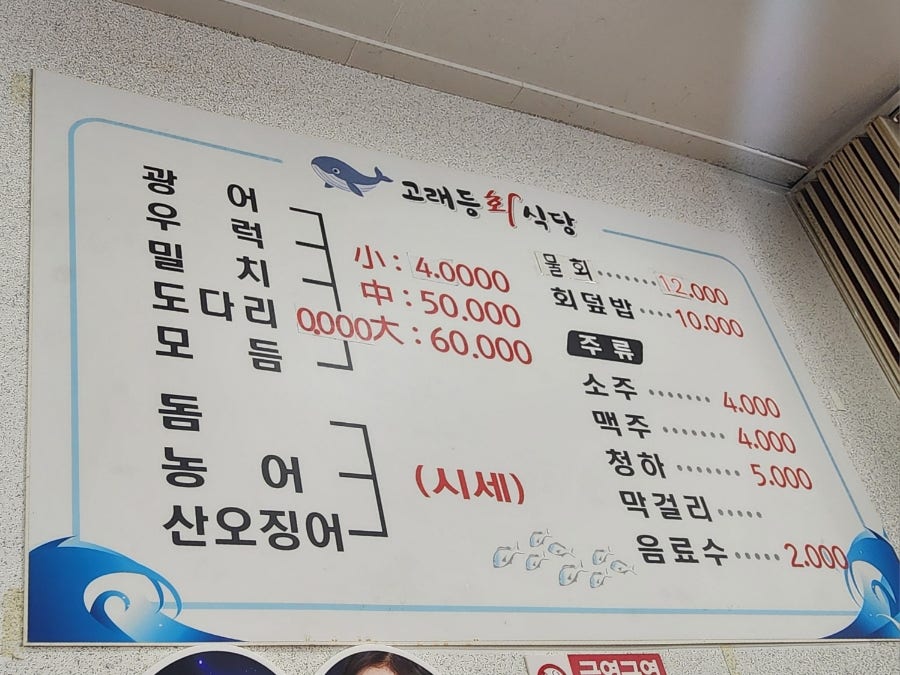 고래등회식당
광어
우럭
밀치
도다리
모듬
小 : 4.0000
中 : 50.000
0.000大 : 60.000
돔
농어
산오징어
(시세)
물회······12.000
회덮밥····10.000
주류
소주·······4.000
맥주·······4.000
청하·······5.000
막걸리·····
음료수·····2.000
금연구역